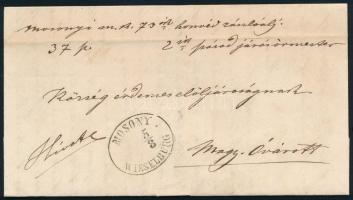 mosonyi m. k. 73ik honvéd zászlóalj.
37 p. 2ik század járásörmester
Község érdemes elöljáróságnak
MOSONY
5/8
WIESELBURG
Magy. Óvárott